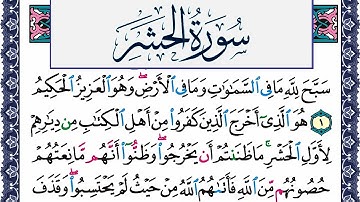 سُورَةُ الحَشۡرِ
سَبَّحَ لِلّٰهِ مَا فِى السَّمٰوٰتِ وَمَا فِى الۡاَرۡضِ ۖ وَهُوَ الۡعَزِيۡزُ الۡحَكِيۡمُ
﴿١﴾ هُوَ الَّذِىۡۤ اَخۡرَجَ الَّذِيۡنَ كَفَرُوۡا مِنۡ اَهۡلِ الۡكِتٰبِ مِنۡ دِيَارِهِمۡ
لِاَوَّلِ الۡحَشۡرِ ۚ مَا ظَنَنۡتُمۡ اَنۡ يَّخۡرُجُوۡا ۖ وَظَنُّوۡۤا اَنَّهُمۡ مَّانِعَتُهُمۡ
حُصُوۡنُهُمۡ مِّنَ اللّٰهِ فَاَتٰىهُمُ اللّٰهُ مِنۡ حَيۡثُ لَمۡ يَحۡتَسِبُوۡا ۖ وَقَذَفَ